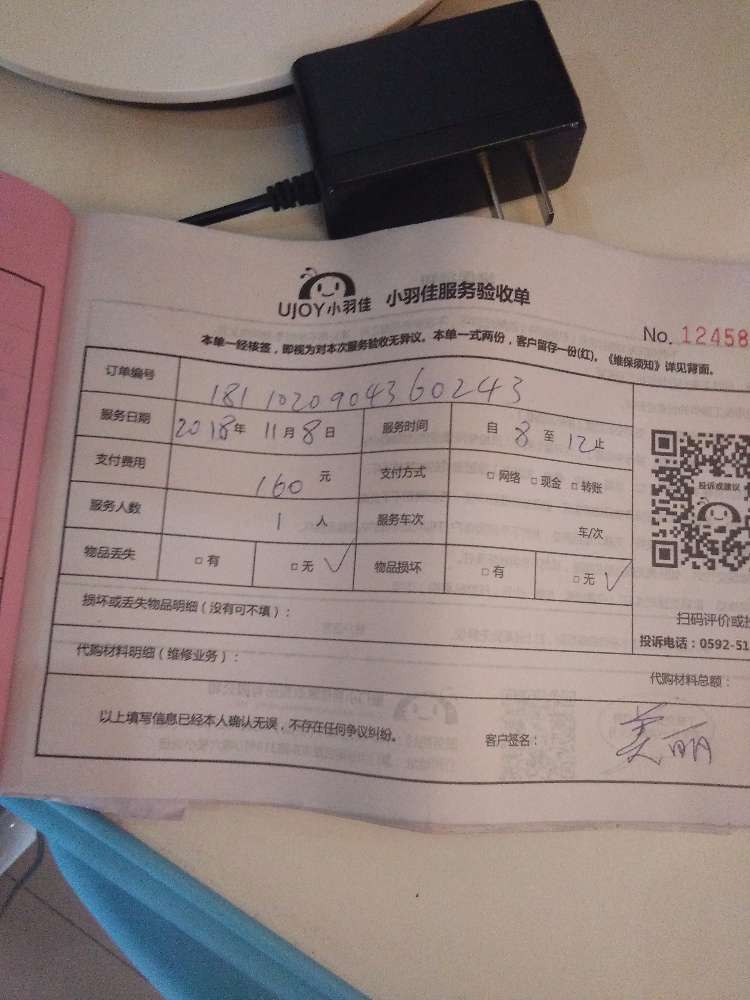 UJOY小羽佳 小羽佳服务验收单
No. 12458
本单一经核签，即视为对本次服务验收无异议。本单一式两份，客户留存一份(红)。《维保须知》详见背面。
订单编号 1811020904360243
服务日期 2018年 11月8日 服务时间 自 8 至 12止
支付费用 160 元 支付方式 □网络 □现金 □转账
服务人数 1 人 服务车次 车/次
物品丢失 □有 □无 ✓ 物品损坏 □有 □无 ✓
投诉或建议
损坏或丢失物品明细（没有可不填）：
扫码评价或
投诉电话：0592-51
代购材料明细（维修业务）：
代购材料总额：
以上填写信息已经本人确认无误，不存在任何争议纠纷。 客户签名： 美丽